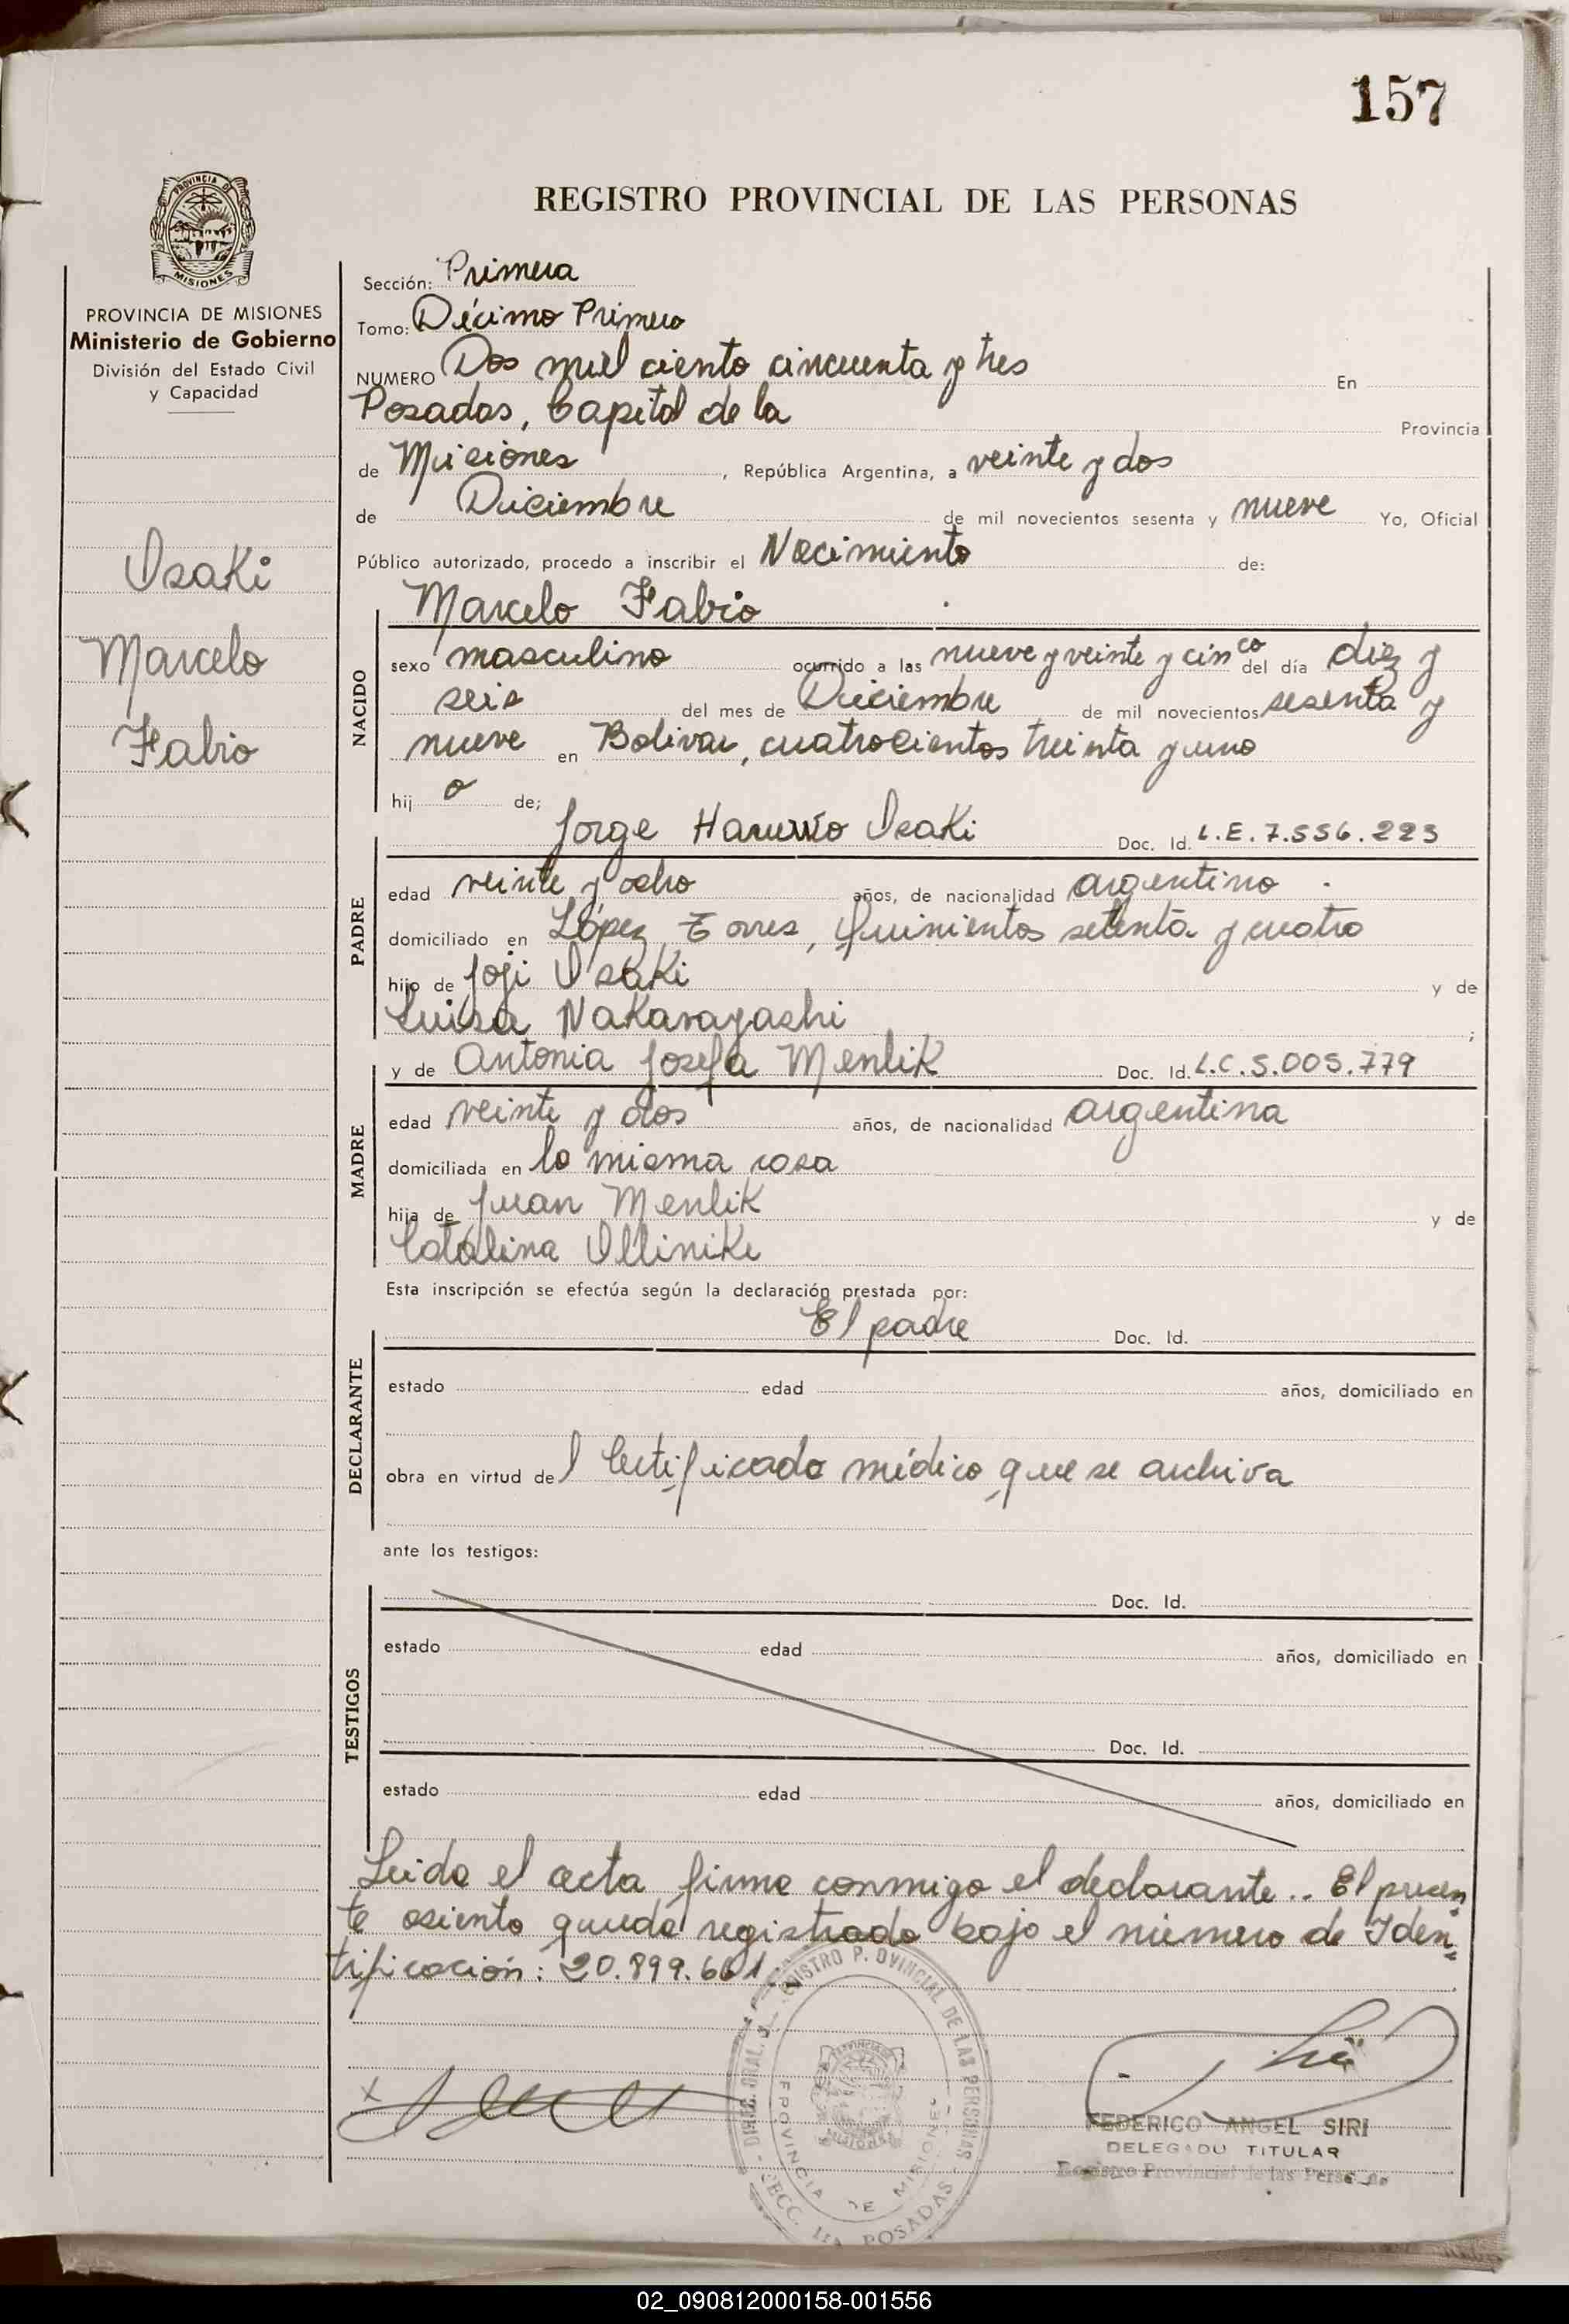 157
REGISTRO PROVINCIAL DE LAS PERSONAS
PROVINCIA DE
MISIONES
PROVINCIA DE MISIONES
Ministerio de Gobierno
División del Estado Civil
y Capacidad
Isaki
Marcelo
Fabio
Sección: Primera
Tomo: Décimo Primero
NUMERO Dos mil ciento cincuenta y tres En
Posadas, Capital de la Provincia
de Misiones, República Argentina, a veinte y dos
de Diciembre de mil novecientos sesenta y nueve Yo, Oficial
Público autorizado, procedo a inscribir el Nacimiento de:
Marcelo Fabio
NACIDO
sexo masculino ocurrido a las nueve y veinte y cinco del día diez y
seis del mes de Diciembre de mil novecientos sesenta y
nueve en Bolivar, cuatrocientos treinta y uno
hij o de;
Jorge Isaki Doc. Id. L.E. 7.556.223
PADRE
edad veinte y ocho años, de nacionalidad argentino
domiciliado en López Torres, quinientos setenta y cuatro
hijo de Joji Isaki y de
Luisa Nakavayashi;
y de Antonia Josefa Menlik Doc. Id. L.C. 5.005.779
MADRE
edad veinte y dos años, de nacionalidad argentina
domiciliada en la misma casa
hija de Juan Menlik y de
Catalina
Esta inscripción se efectúa según la declaración prestada por:
El padre Doc. Id.
DECLARANTE
estado edad años, domiciliado en
obra en virtud del Certificado médico que se archiva
ante los testigos:
Doc. Id.
TESTIGOS
estado edad años, domiciliado en
Doc. Id.
estado edad años, domiciliado en
Leida el acta, firma conmigo el declarante.. El presen
te asiento queda registrado bajo el número de Iden=
tificación: 20.899.661.
DIREC. GRAL. REGISTRO PROVINCIAL DE LAS PERSONAS
PROVINCIA DE MISIONES
SECC. 1ra POSADAS
FEDERICO ANGEL SIRI
DELEGADO TITULAR
Registro Provincial de las Personas
02_090812000158-001556